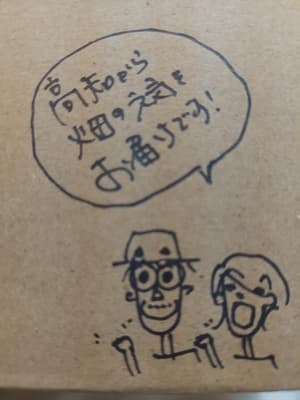 高知から
畑の元気を
お届けです!